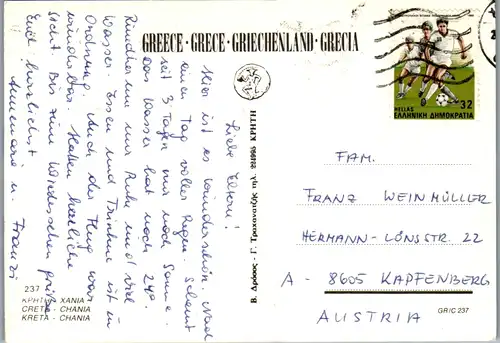 GREECE · GRECE · GRIECHENLAND · GRECIA
Liebe Eltern!
Hier ist es wunderschön. Nach
einem Tag voller Regen. Scheint
seit 3 Tagen nur noch Sonne.
Das Wasser hat noch 24°.
Rundherum nur Ruhe und viel
Wasser. Essen und Trinken ist in
Ordnung. Auch der Flug war
wunderbar. Haben herrliche
Sicht. Bis zum Wiedersehen grüßen
Euch herzlichst
Annemarie u. Franzi
237
ΚΡΗΤΗ - ΧΑΝΙΑ
CRETE - CHANIA
KRETA - CHANIA
Β. Δρόσος - Γ. Τραχανατζής τηλ. 224995 ΚΡΗΤΗ
ΕΛΛΗΝΙΚΗ ΔΗΜΟΚΡΑΤΙΑ
HELLAS
32
FAM.
FRANZ WEINMÜLLER
HERMANN-LÖNSSTR. 22
A - 8605 KAPFENBERG
AUSTRIA
GR/C 237